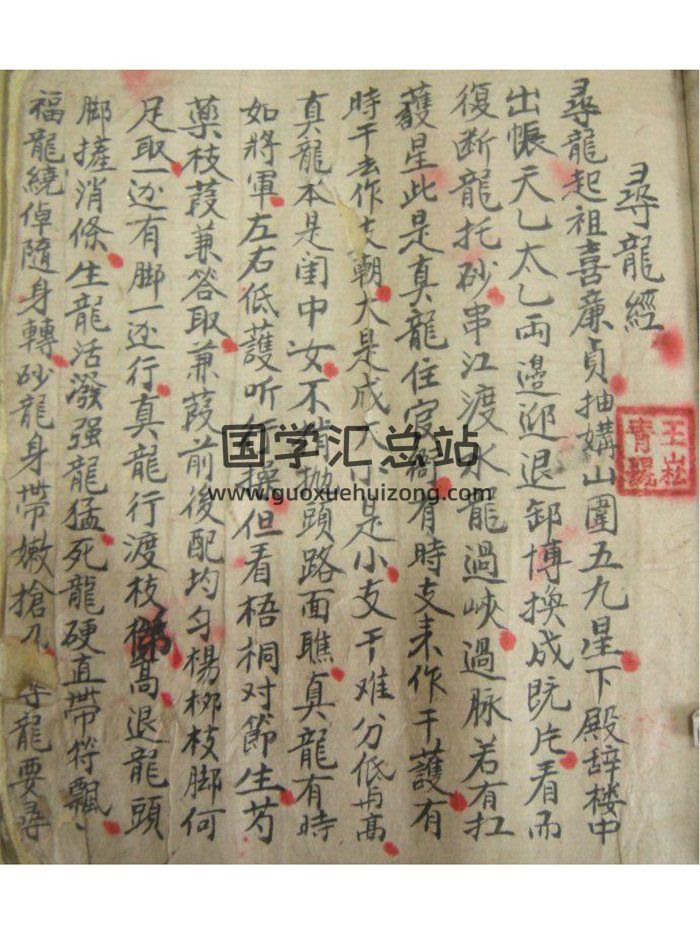 尋龍經
尋龍起祖喜廉貞抽媾山圍五九星下殿辞楼中
出帳天乙太乙両邉迎退卸博換成既片看而
復断龍托砂串江渡水龍過峽過脉若有扛
護星此是真龍住寝衙有時支来作干護有
時干去作支朝大是成大小是小支干难分低与高
真龍本是闺中女不肯抛頭路面瞧真龍有時
如將軍左右低護听行操但看梧桐对節生芍
藥枝葮兼答取兼葮前後配均匀楊柳枝脚何
足取一边有脚一边行真龍行渡枝高退龍頭
脚搓消條生龍活潑强龍猛死龍硬直帶符飄
福龍繞倬隨身轉砂龍身帶嫩搶刀尋龍要尋
国学汇总站
www.guoxuehuizong.com